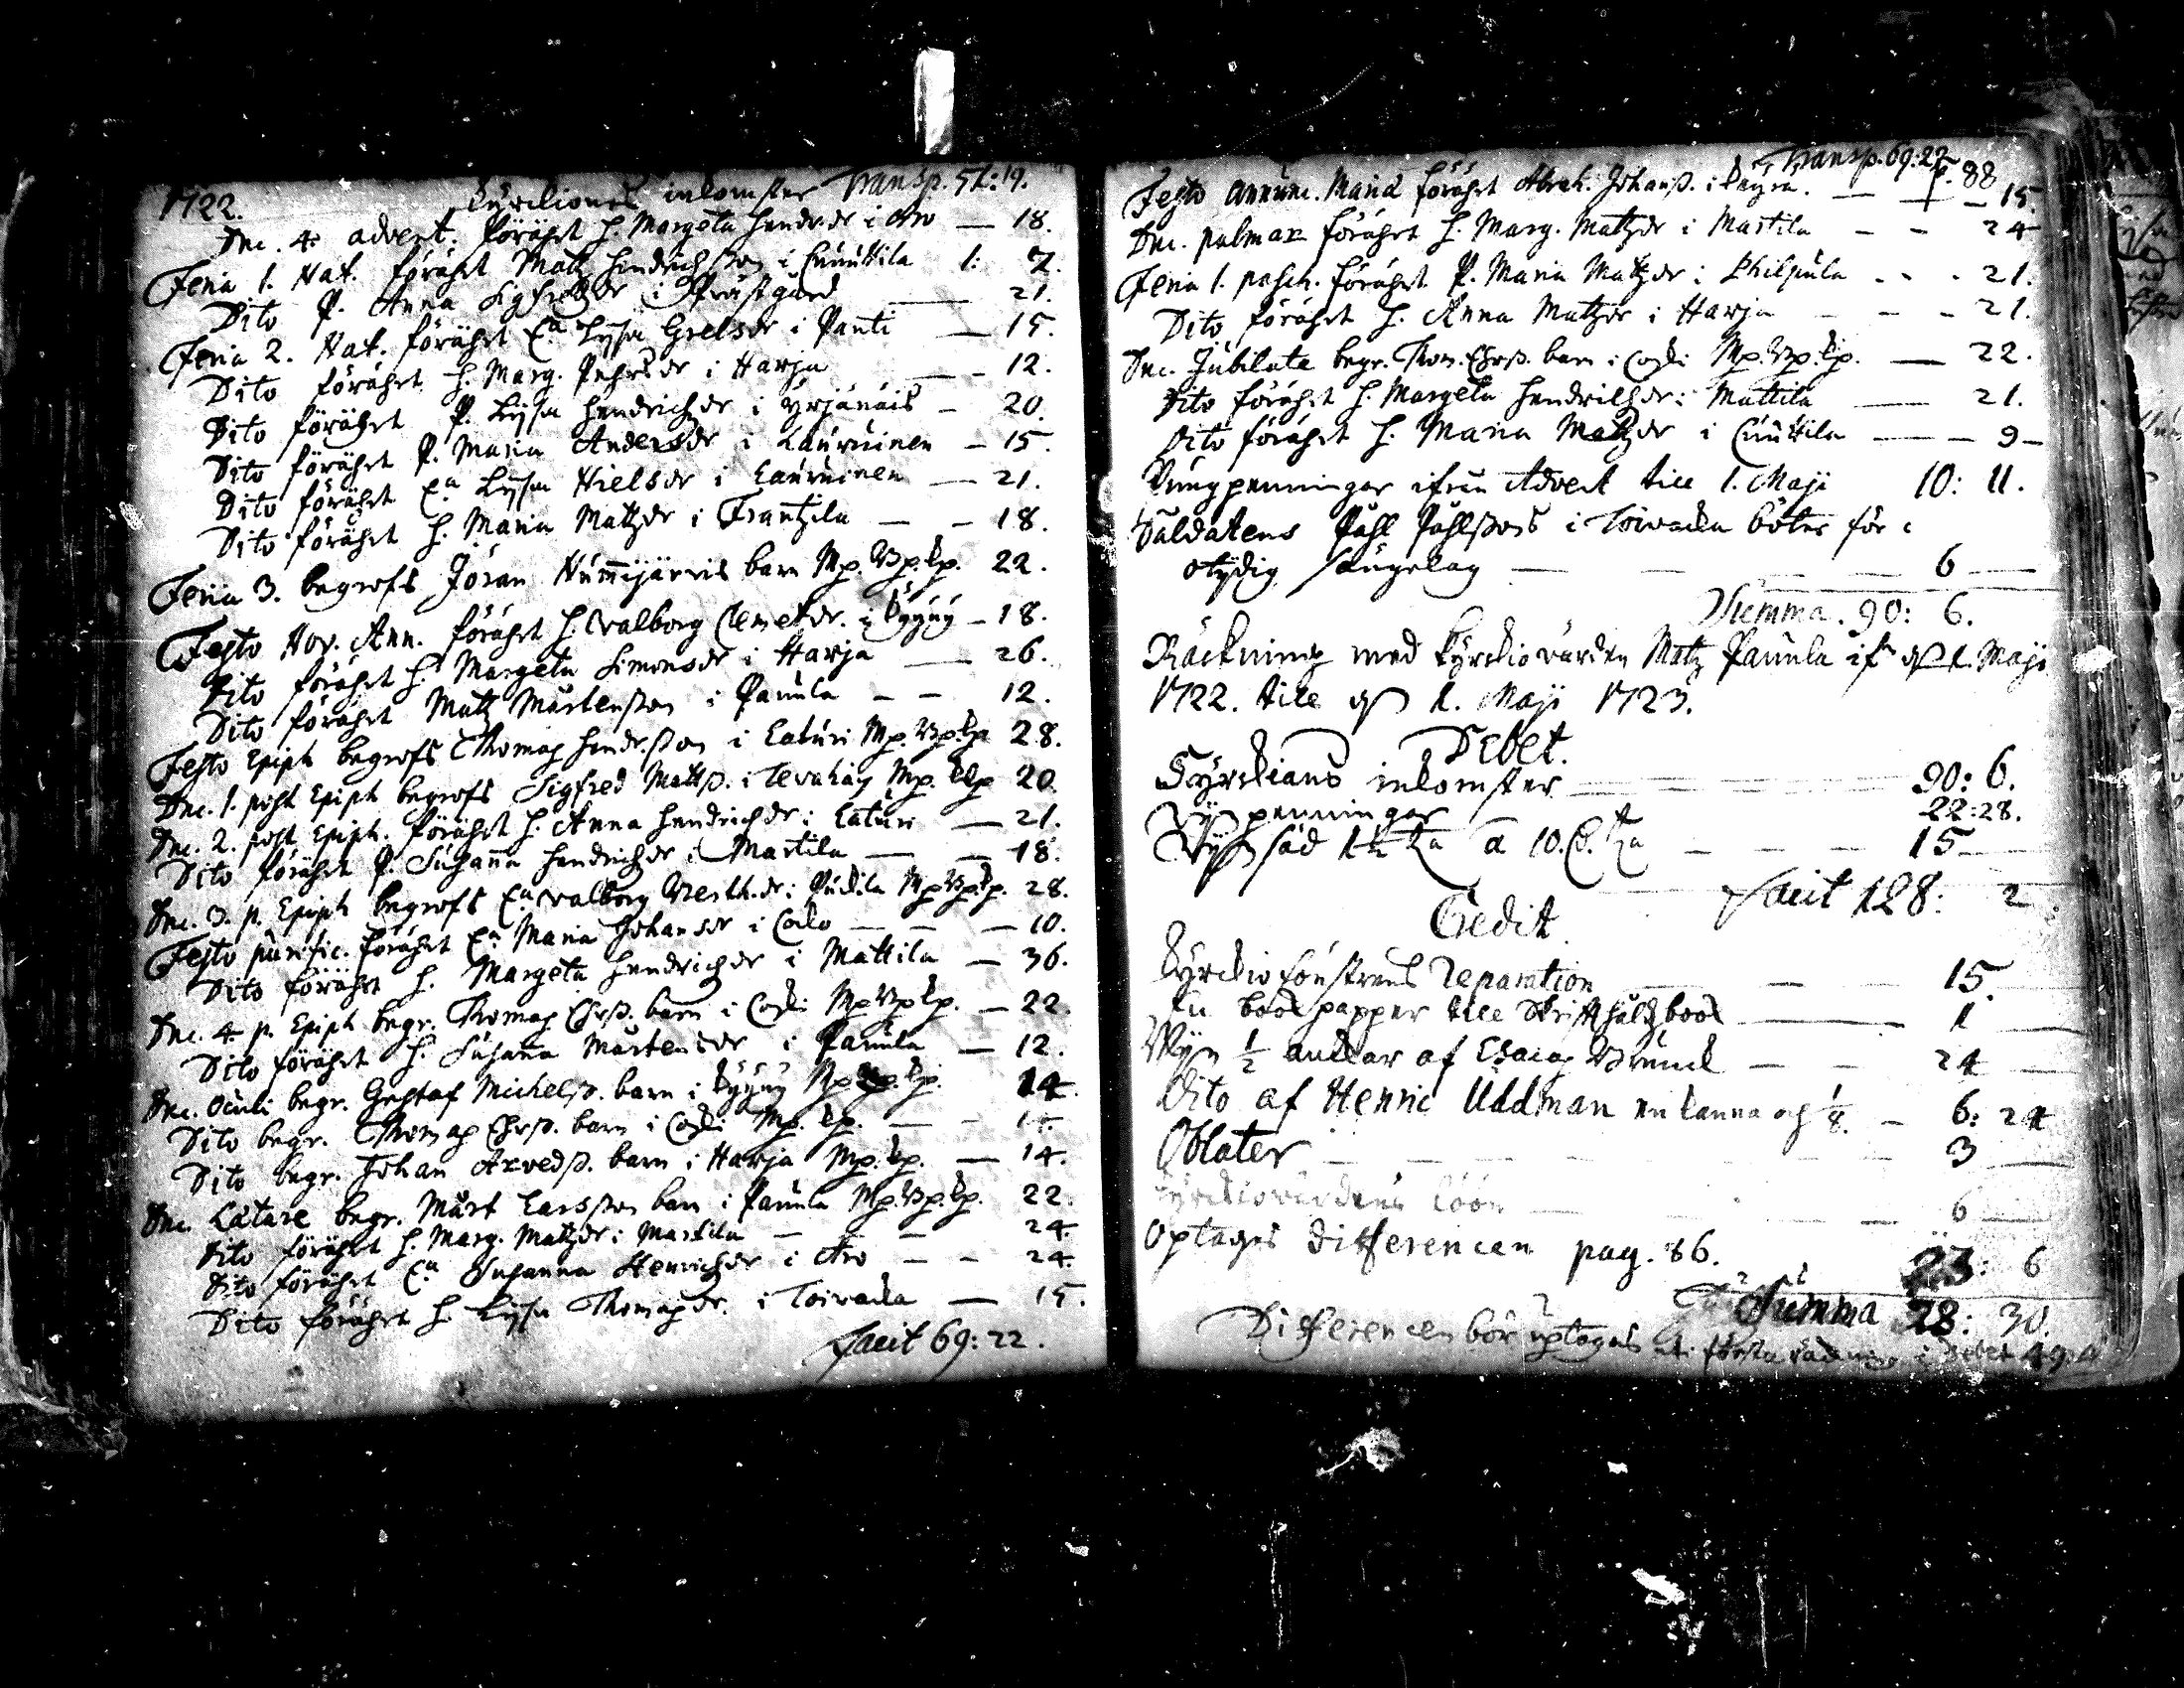 1722. Kyrkiones inkomster Transp. 51: 19.
Dnc. 4. advent. förährt h. Margeta Hendr.dr i Aro — 18.
Feria 1. Nat. förährt Matz Hendrichsson i Cnuuttila 1: 7.
Dito P. Anna Sigfredzdr i Prästgård — 21.
Feria 2. Nat. förährt E.a Lysa Grelsdr i Panti — 15.
Dito förährt h. Marg. Pehrsdr i Harja — 12.
Dito förährt P. Lysa Hendrichzdr i Yrjänäis — 20.
Dito förährt P. Maria Andersdr i Lauruinen — 15.
Dito förährt E.a Lysa Nielsdr i Lauruinen — 21.
Dito förährt h. Maria Matzdr i Frantzila — — 18.
Feria 3. begrofs Jöran Nummijärvis barn Mp. Bp. Kp. 22.
Festo Nov. Ann. förährt h. Valborg Clemetdr. i Kyyny — 18.
Dito förährt h. Margeta Simonsdr i Harja — 26.
Dito förährt Matz Mårtensson i Panula — — 12.
Festo Epiph begrofs Thomas Hendersson i Laturi Mp. Bp. Kp 28.
Dnc. 1. post Epiph begrofs Sigfred Mattss. i Tevahaiy Mp. Kp 20.
Dnc. 2. post Epiph. förährt h. Anna Hendrichdr i Laturi — 21.
Dito förährt P. Susanna Hendrichdr i Martila — — 18.
Dnc. 3. p. Epiph begrofs E.a Valborg Berth.dr i Puckila Mp Bp. Kp. 28.
Festo purific. förährt E.a Maria Johansdr i Cocko — — 10.
Dito förährt h. Margeta Hendrichdr i Mattila — 36.
Dnc. 4 p. Epiph. begr. Thomas Ehrss. barn i Coski Mp Bp Kp. — 22.
Dito förährt h. Susanna Mårtensdr i Panula — 12.
Dnc. Oculi begr. Gustaf Michelss. barn i Kyyny Mp. Bp. Kp. 14.
Dito begr. Thomas Ehrss. barn i Coski Mp. Kp. — —
Dito begr. Johan Arvedss. barn i Harja Mp. Kp. — 14.
Dnc. Lätare begr. Mårt Larsson barn i Panula Mp. Bp. Kp. 22.
Dito förährt h. Marg. Matzdr i Martila — — 24.
Dito förährt E.a Susanna Henrichdr i Aro — — 24.
Dito förährt h. Lysa Thomasdr. i Toivacka — 15.
Facit 69: 22.
Transp. 69: 22
p. 88
Festo Annunc. Mariä förährt Abrah. Johanss. i — — 15.
Dnc. palmar förährt h. Marg. Matzdr i Martila — — 24
Feria 1. pasch. förährt P. Maria Matzdr i Philpula - - - 21.
Dito förährt h. Anna Matzdr i Harja — — - 21.
Dnc. Jubilate begr. Thom. Ehrss. barn i Coski Mp. Bp. Kp. — 22.
Dito förährt h. Margeta Hendrichdr i Mattila — 21.
Dito förährt h. Maria Matzdr i Cnuuttila — — 9 —
Pungpenningar ifrån Advent till 1. Maji 10: 11.
Saldatens Påhl Påhlssons i Toivacka böter för
otydig sängelag — — — 6 —
Summa. 90: 6.
Räckning med kyrckiovärden Matz Panula ifr. d. 1. Maji
1722. till d. 1. Maji 1723.
Debet.
Kyrckians inkomster — — 90: 6.
penningar 22: 28.
säd 1½ t.a a 10. t.a — — — 15 —
Facit 128: 2
Credit.
Kyrckiofönstrens reparation — — 15.
En book papper till Skriftskåhls book — 1 —
Wyn ½ anckar af Esaias Brunck — — 24 —
Dito af Henric Uddman en kanna och 1/8. — 6: 24
Oblater — — — 3 —
Kyrckiovärdens löön — — — 6 —
Optages differencen pag. 86. 23: 6
Summa 28: 30.
Differencen bör uptages uti första räckning i debet 49: 4